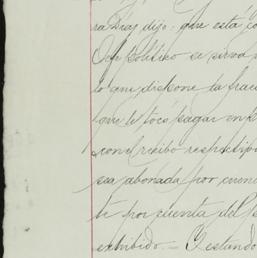 ra Diaz dijo: que está co
Jefe político se sirva
lo que dispone la frac
que le tocó pagar en
con el recibo respectivo
sea abonada por cuen
te por cuenta del
exhibido.— Y estando